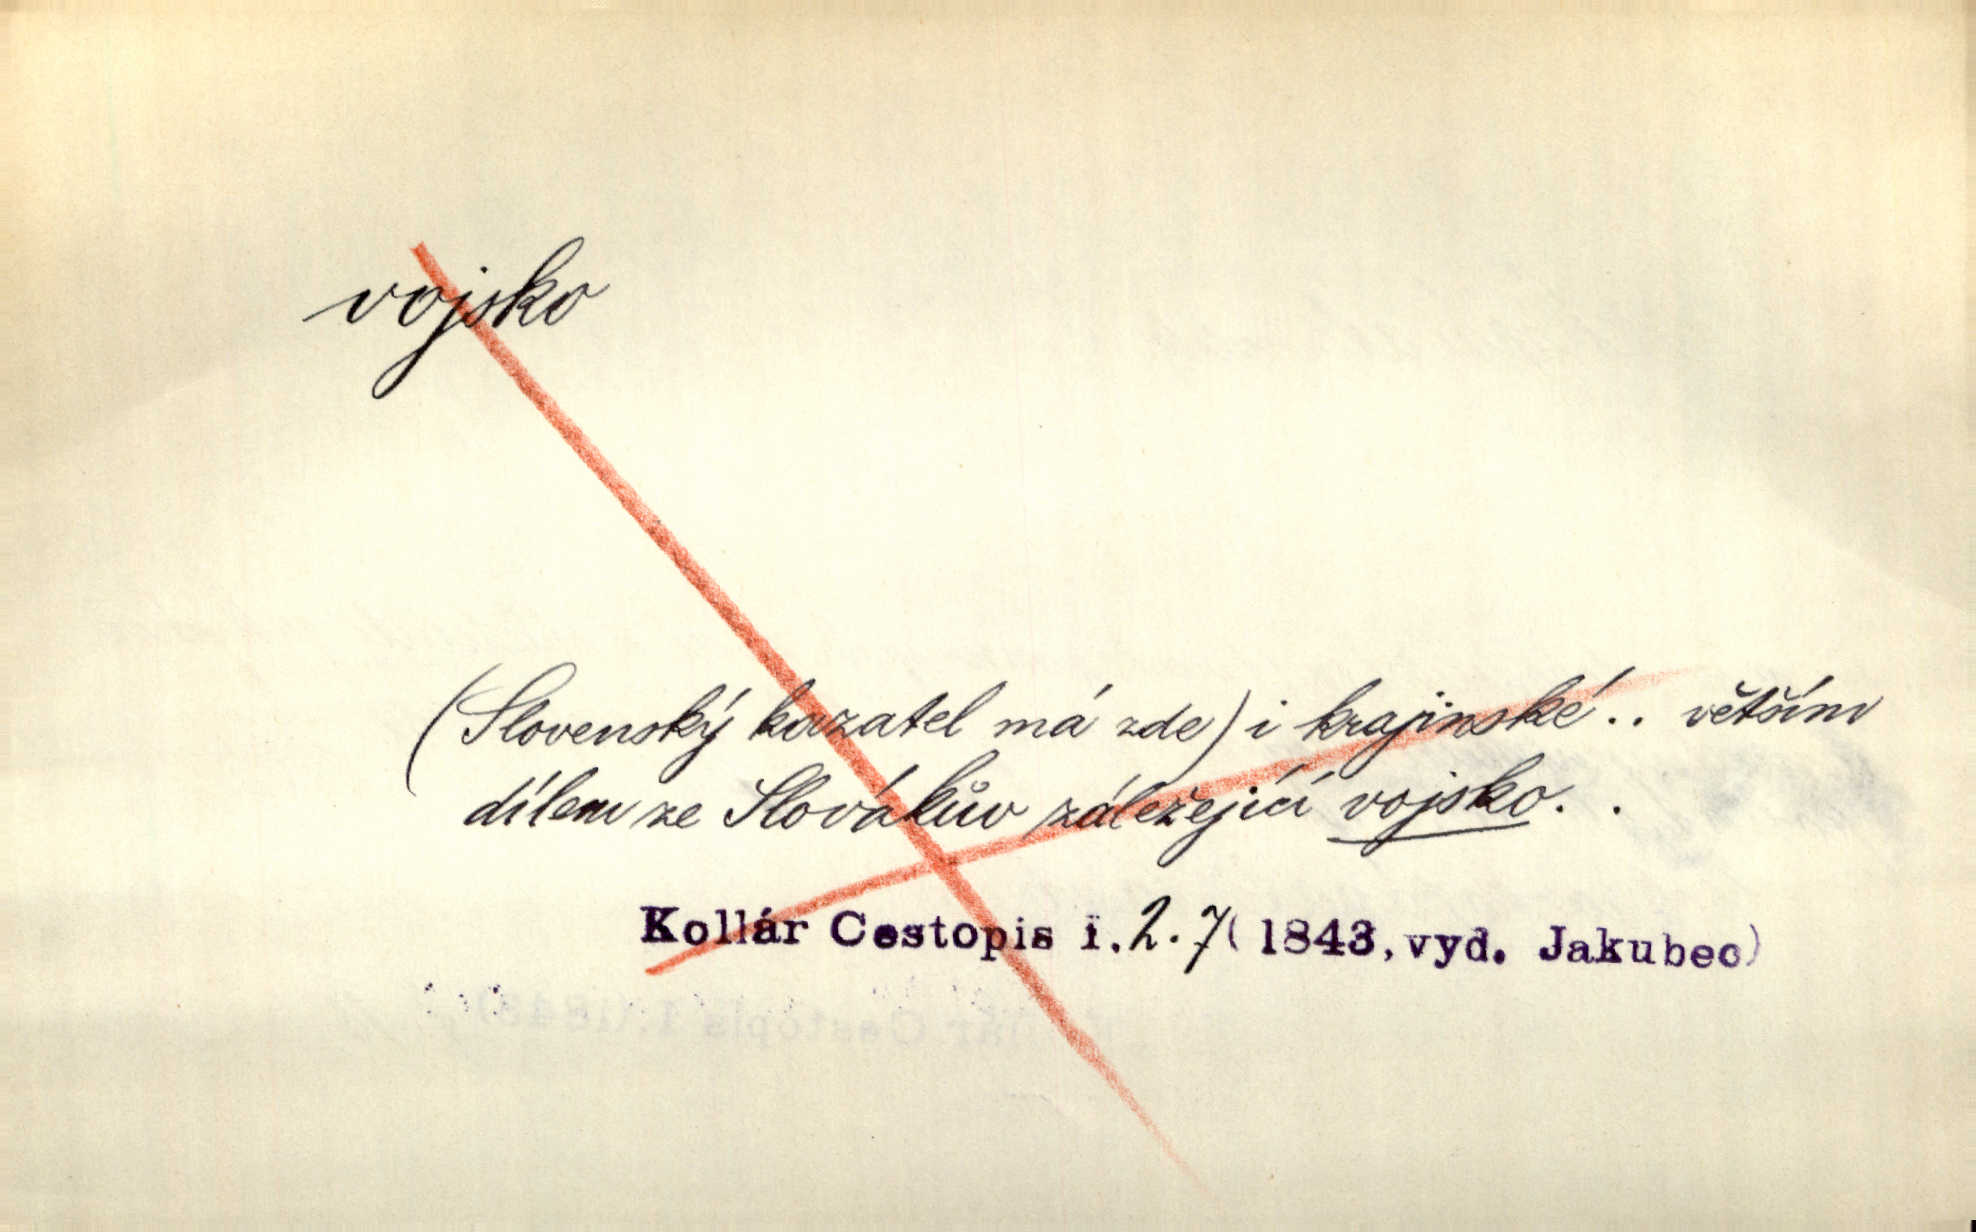 vojsko
(Slovenský kazatel má zde) i krajinské .. větším
dílem ze Slovákův záležející vojsko. .
Kollár Cestopis i. 2. 7 (1843, vyd. Jakubec)